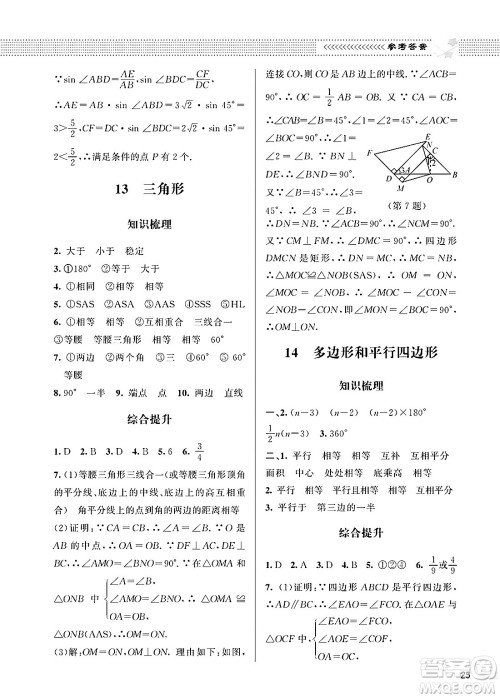 参考答案
又∵sin ∠ABD=AE/AB,sin ∠BDC=CF/DC
∴AE=AB·sin ∠ABD=3√2·sin 45°=
3>5/2,CF=CD·sin ∠BDC=2√2·sin 45°=
2<5/2,∴满足条件的点 P 有 2 个.
13 三角形
知识梳理
2. 大于 小于 稳定
3. ①180° ②等于 大于
4. ①相同 ②相等
5. ①SAS ②ASA ③AAS ④SSS ⑤HL
6. ①相等 ②相等 互相重合 三线合一
③相等 ④相等 ⑤等腰 等腰
7. ①两边 ②两个角 ③相等 60° ④相等
等腰
8. 90° 一半 9. 端点 点 10. 两边 直线
综合提升
1. D 2. B 3. D 4. B 5. 6 6. 3/4
7. (1)等腰三角形三线合一(或等腰三角形顶角
的平分线、底边上的中线、底边上的高互相重
合) 角平分线上的点到角的两边的距离相等
(2)证明:∵CA=CB,∴∠A=∠B. ∵O
是 AB 的中点,∴OA=OB. ∵DF⊥AC,DE⊥
BC,∴∠AMO=∠BNO=90°. ∵在△OMA和
△ONB 中{∠A=∠B
∠AMO=∠BNO, ∴△OMA≌
OA=OB
△ONB(AAS),∴OM=ON.
(3)解:OM=ON,OM⊥ON. 理由如下:如图,
连接 CO,则 CO 是 AB 边上的中线. ∵∠ACB=
90°,∴OC=1/2 AB=OB. 又∵CA=CB,
∴∠CAB=∠B=45°,∠1=∠2=45°,∠AOC=
∠BOC=90°,∴∠2=∠B.
∵BN⊥DE,∴∠BND=
90°. 又∵∠B=45°,∴∠3=
45°,∴∠3=∠B,
(第 7 题)
∴DN=NB. ∵∠ACB=90°,∴∠NCM=90°.
又∵BN⊥DE,∴∠DNC=90°,∴四边形
DMCN 是矩形,∴DN=MC,∴MC=NB,
∴△MOC≌△NOB(SAS),∴OM=ON,
∠MOC=∠NOB,∴∠MOC-∠CON=
∠NOB-∠CON,即∠MON=∠BOC=90°,
∴OM⊥ON.
14 多边形和平行四边形
知识梳理
一、2. (n-3) (n-2) (n-2)×180°
1/2 n(n-3) 3. 360°
二、1. 平行 相等 相等 互补 互相平分
面积 中心 处处相等 底乘高 相等
2. 平行 平行且相等 相等 互相平分
3. 平行于 第三边的一半
综合提升
1. D 2. A 3. C 4. C 5. ①②④ 6. 1/9或4/9
7. (1)证明:∵四边形 ABCD 是平行四边形,
∴AD∥BC,∴∠EAO=∠FCO. 在△OAE 和
△OCF 中,{∠EAO=∠FCO
OA=OC
25